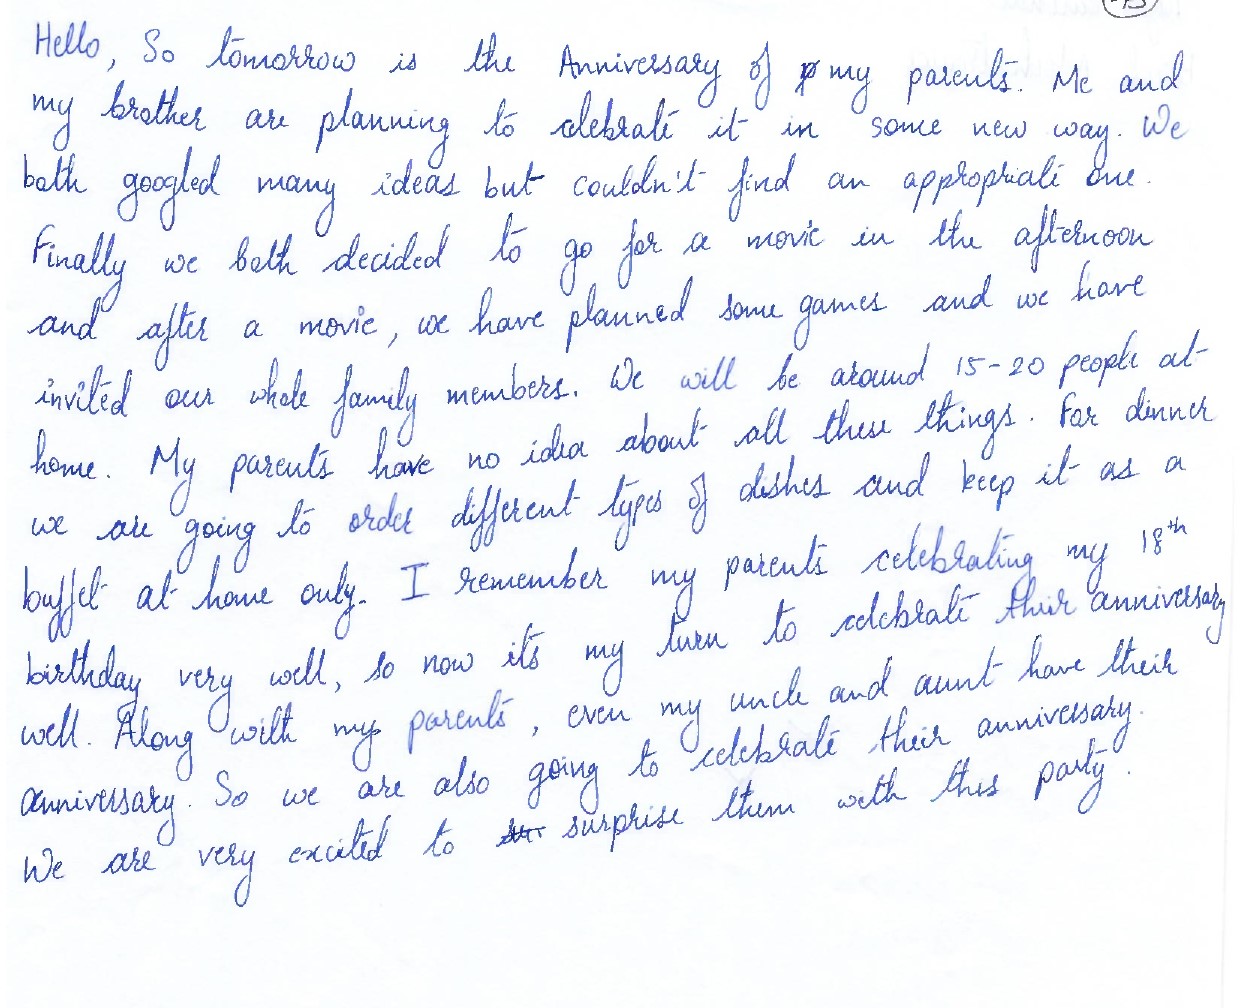 Hello, So tomorrow is the Anniversary of my parents. Me and
my brother are planning to celebrate it in some new way. We
both googled many ideas but couldn't find an appropriate one.
Finally we both decided to go for a movie in the afternoon
and after a movie, we have planned some games and we have
invited our whole family members. We will be around 15-20 people at
home. My parents have no idea about all these things. For dinner
we are going to order different types of dishes and keep it as a
buffet at home only. I remember my parents celebrating my 18th
birthday very well, so now its my turn to celebrate their anniversary
well. Along with my parents, even my uncle and aunt have their
anniversary. So we are also going to celebrate their anniversary.
We are very excited to surprise them with this party.